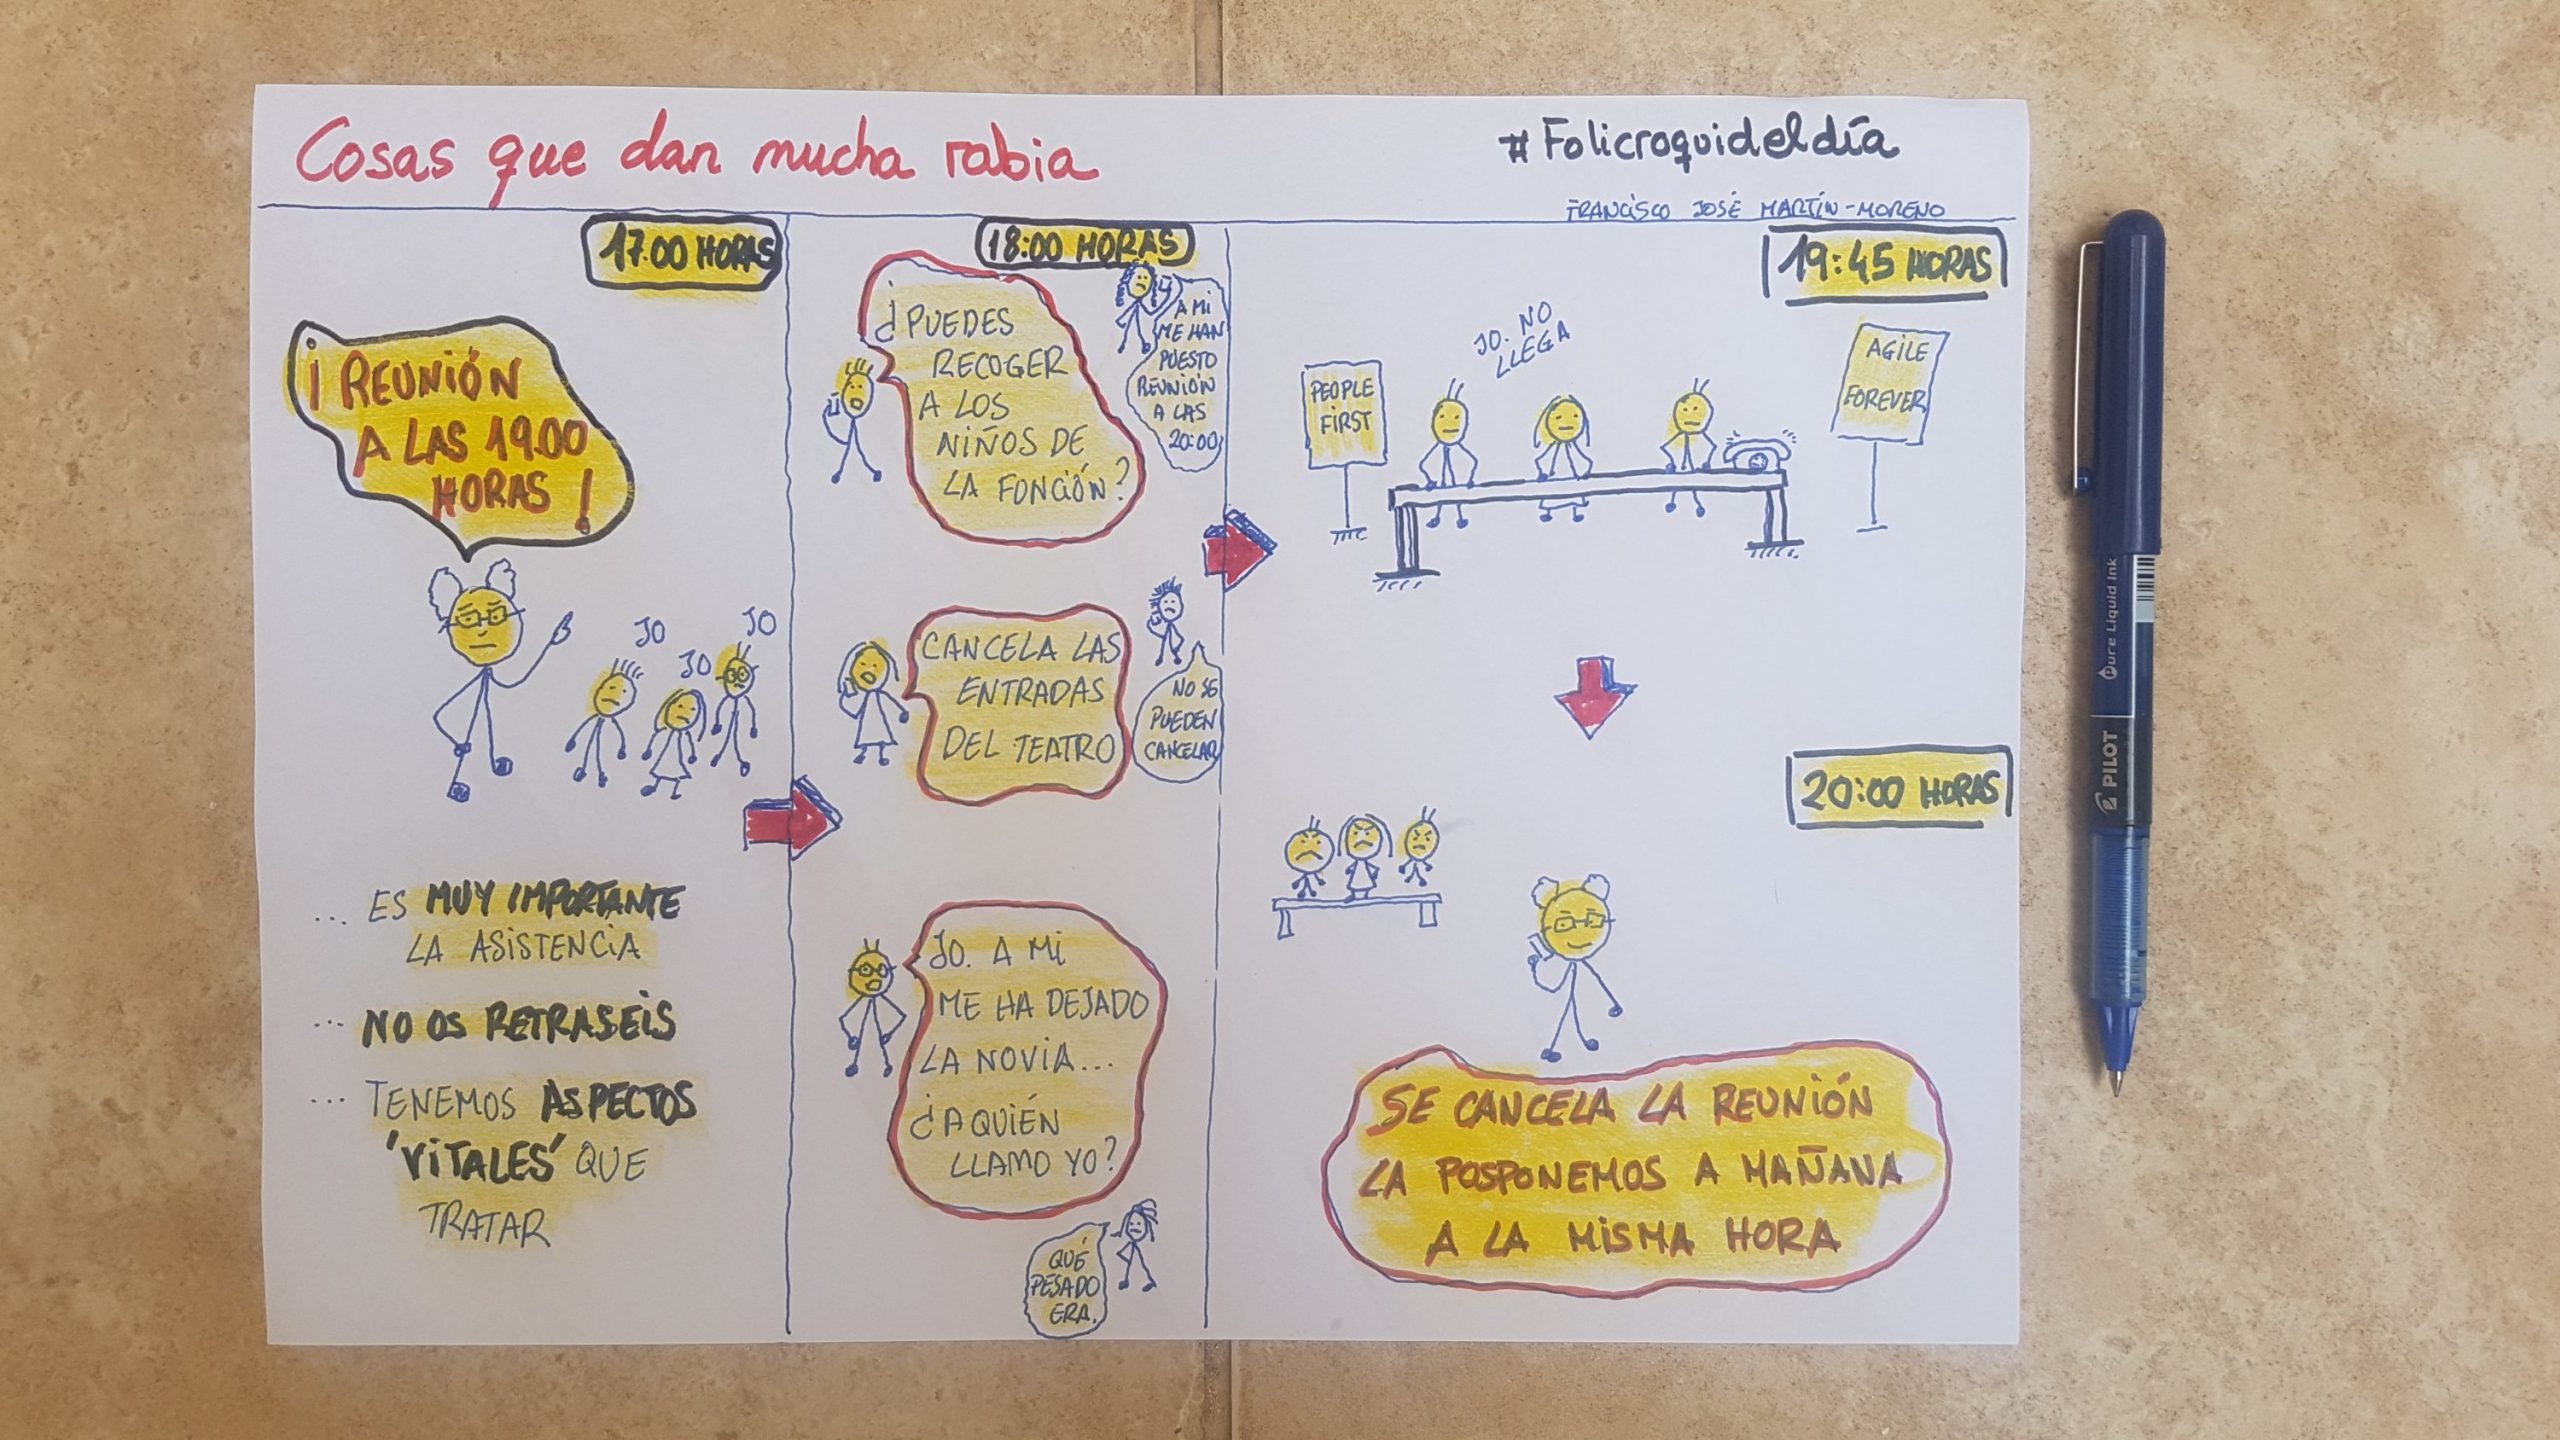 Cosas que dan mucha rabia
#Folicroquideldía
FRANCISCO JOSÉ MARTÍN-MORENO
17.00 HORAS
¡REUNIÓN
A LAS 19.00
HORAS!
JO
JO
JO
... ES MUY IMPORTANTE
LA ASISTENCIA
... NO OS RETRASEIS
... TENEMOS ASPECTOS
'VITALES' QUE
TRATAR
18:00 HORAS
¿PUEDES
RECOGER
A LOS
NIÑOS DE
LA FONCIÓN?
A MI
ME HAN
PUESTO
REUNIÓN
A LAS
20:00
CANCELA LAS
ENTRADAS
DEL TEATRO
NO SE
PUEDEN
CANCELAR
JO. A MI
ME HA DEJADO
LA NOVIA...
¿A QUIÉN
LLAMO YO?
QUÉ
PESADO
ERA.
19:45 HORAS
JO. NO
LLEGA
PEOPLE
FIRST
AGILE
FOREVER
20:00 HORAS
SE CANCELA LA REUNIÓN
LA POSPONEMOS A MAÑANA
A LA MISMA HORA
Pure Liquid Ink
PILOT